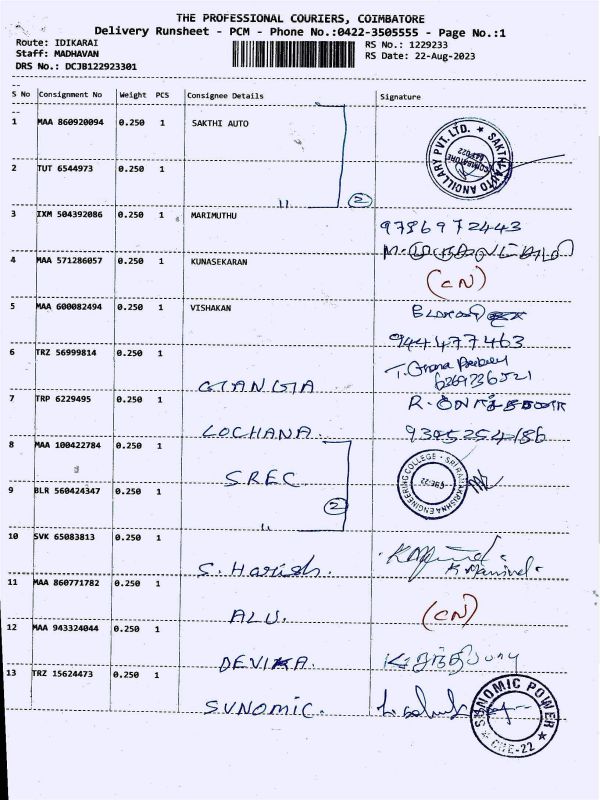 THE PROFESSIONAL COURIERS, COIMBATORE
Delivery Runsheet - PCM - Phone No.:0422-3505555 - Page No.:1
Route: IDIKARAI
RS No.: 1229233
Staff: MADHAVAN
RS Date: 22-Aug-2023
DRS No.: DCJB122923301
S No Consignment No Weight PCS Consignee Details Signature
1 MAA 860920094 0.250 1 SAKTHI AUTO
SAKTHI AUTO ANCILLARY PVT. LTD. ★
COIMBATORE
641022
2 TUT 6544973 0.250 1 〃 2
3 IXM 504392086 0.250 1 MARIMUTHU
9786972443
4 MAA 571286057 0.250 1 KUNASEKARAN
(CN)
5 MAA 600082494 0.250 1 VISHAKAN
944477463
6 TRZ 56999814 0.250 1 GIANGIA
6269736521
7 TRP 6229495 0.250 1 LOCHANA.
9385254186
8 MAA 100422784 0.250 1 SREC
SRI RAMAKRISHNA ENGINEERING COLLEGE
CBE-22
9 BLR 560424347 0.250 1 〃 2
10 SVK 65083813 0.250 1 S. Harish.
K. Manivel.
11 MAA 860771782 0.250 1 ALU. (CN)
12 MAA 943324044 0.250 1 DEVIKA.
13 TRZ 15624473 0.250 1 SUNOMIC.
SUNOMIC POWER
★ CBE-22 ★